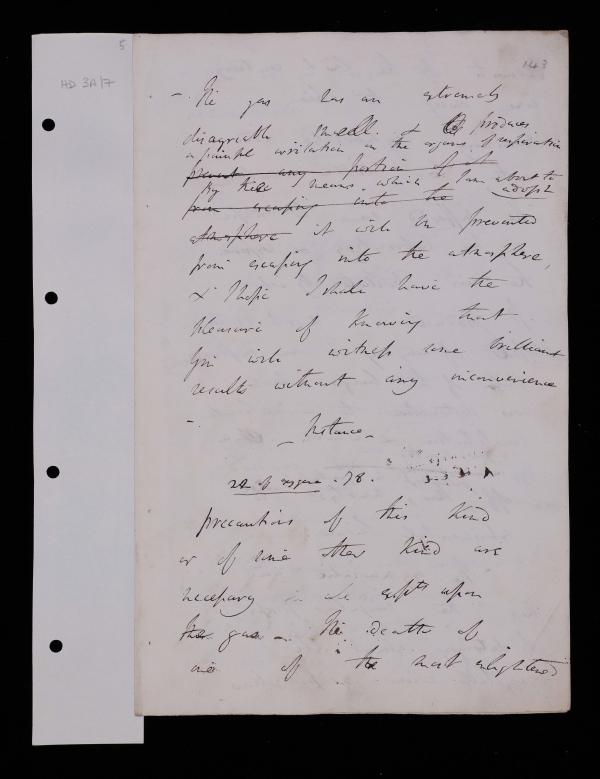 5
HD 3A/7
143
-. The gas has an extremely
disagreeable smell. & produces
a painful irritation in the organs of respiration
prevent any portion of it
By the means which I am about to
adopt
from escaping into the
atmosphere it will be prevented
from escaping into the atmosphere,
& I hope I shall have the
pleasure of knowing that
You will witness some brilliant
results without any inconvenience
-.
- Instance -
22 of oxygene . 78 .
precautions of this Kind
or of some other Kind are
necessary in all expts upon
this gas - The death of
one of the most enlightened